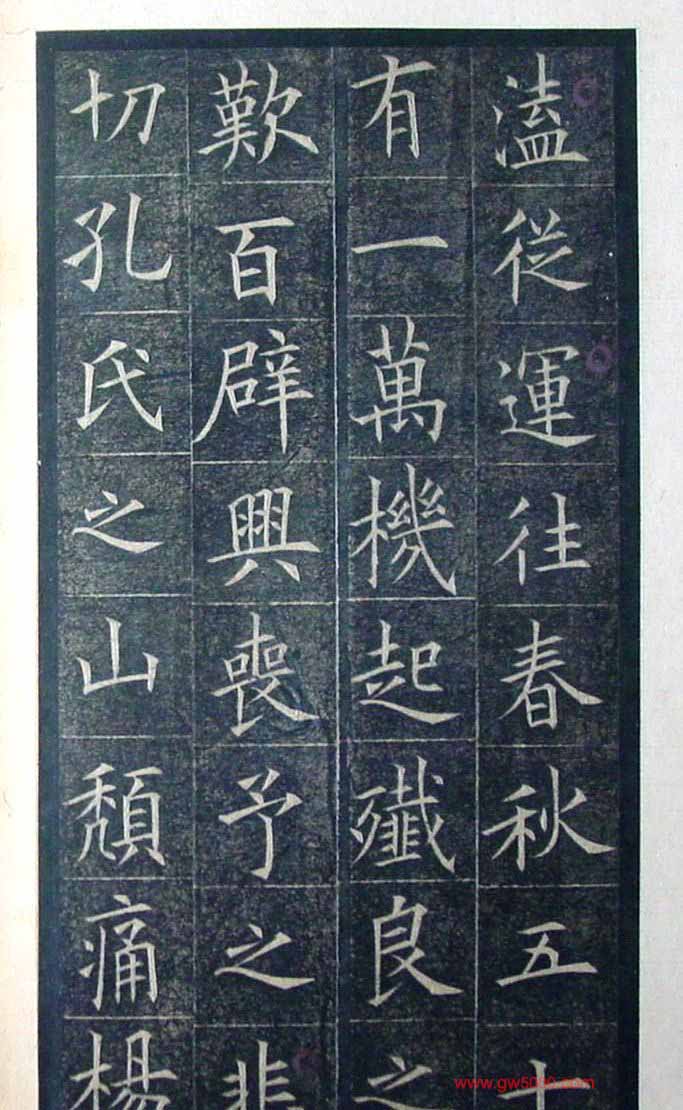 溘從運往春秋五十
有一萬機起殲良之
歎百辟興喪予之悲
切孔氏之山頹痛楊
www.gw5000.com